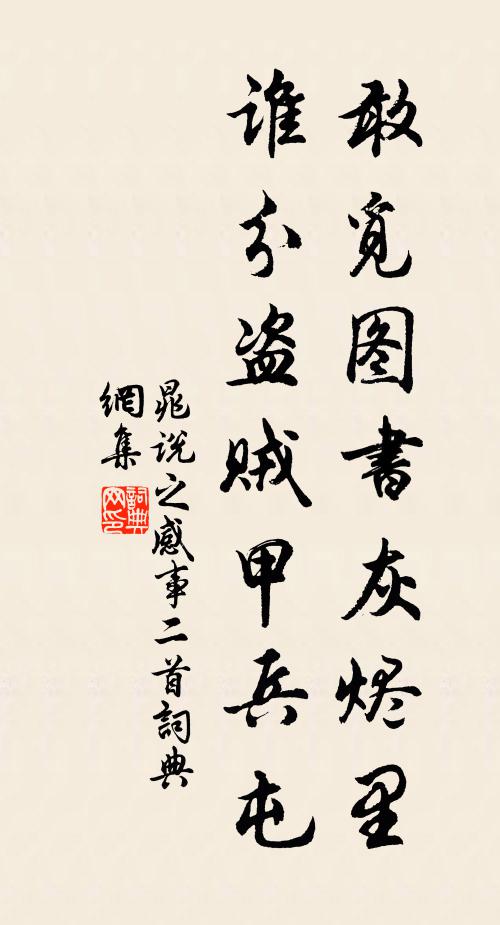 敢觅图书灰烬里
谁分盗贼甲兵屯
晁说之感事二首詞典
網集
詞典
网印